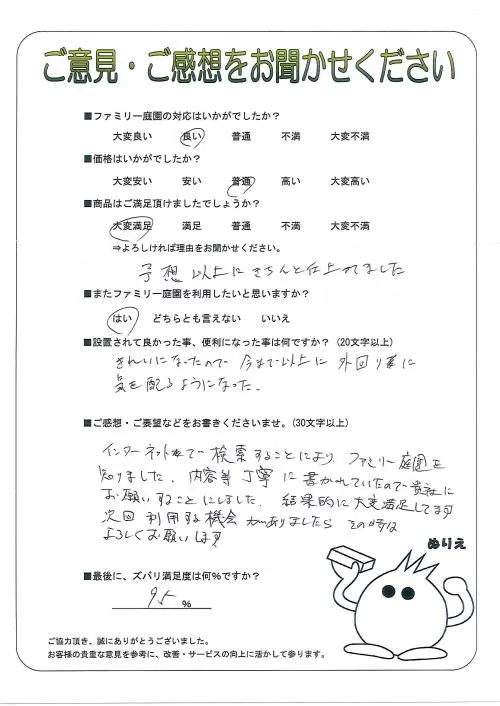 ご意見・ご感想をお聞かせください
■ファミリー庭園の対応はいかがでしたか？
大変良い 良い 普通 不満 大変不満
■価格はいかがでしたか？
大変安い 安い 普通 高い 大変高い
■商品はご満足頂けましたでしょうか？
大変満足 満足 普通 不満 大変不満
⇒よろしければ理由をお聞かせください。
予想以上にきちんと仕上れてました
■またファミリー庭園を利用したいと思いますか？
はい どちらとも言えない いいえ
■設置されて良かった事、便利になった事は何ですか？（20文字以上）
きれいになったので今まで以上に外回り等に
気を配るようになった.
■ご感想・ご要望などをお書きくださいませ。（30文字以上）
インターネットで検索することにより、ファミリー庭園を
知りました、内容等丁寧に書かれていたので貴社に
お願いすることにしました、結果的に大変満足してます
次回利用する機会がありましたらその時は
よろしくお願いします
ぬりえ
■最後に、ズバリ満足度は何％ですか？
95 %
ご協力頂き、誠にありがとうございました。
お客様の貴重な意見を参考に、改善・サービスの向上に活かして参ります。